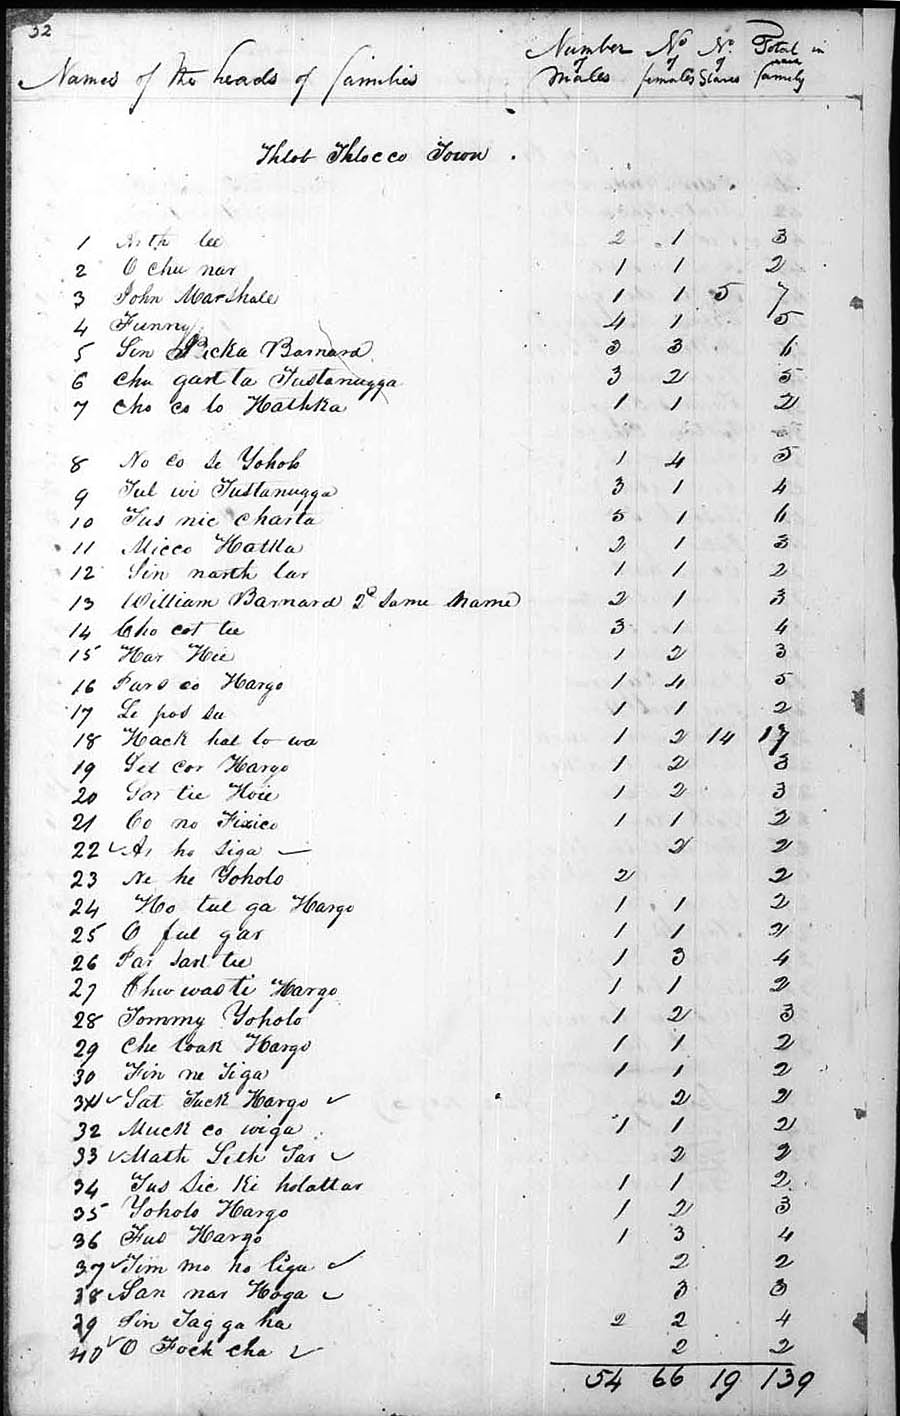 32
Names of the heads of families Number of Males No of females No of Slaves Total in each family
Thlob Thlocco Town .
1 Arth lee 2 1 3
2 O chu nar 1 1 2
3 John Marshale 1 1 5 7
4 Funny 4 1 5
5 Sin Bicka Barnard 3 3 6
6 Chu gart ta Tustanugga 3 2 5
7 Cho co lo Hathka 1 1 2
8 No co se Yoholo 1 4 5
9 Tul wi Tustanugga 3 1 4
10 Tus nic Charta 5 1 6
11 Micco Hatka 2 1 3
12 Sin narth lar 1 1 2
13 William Barnard 2d Same Name 2 1 3
14 Cho cot lee 3 1 4
15 Har Hie 1 2 3
16 Pars co Hargo 1 4 5
17 Le pos su 1 1 2
18 Hack hal lo wa 1 2 14 17
19 Sel cor Hargo 1 2 3
20 Sar tie Hoie 1 2 3
21 Co no Fixico 1 1 2
22 Ar ho siga 2 2
23 Ne he Yoholo 2 2
24 Ho tul ga Hargo 1 1 2
25 O ful gar 1 1 2
26 Par sart tee 1 3 4
27 Chow was ti Hargo 1 1 2
28 Tommy Yoholo 1 2 3
29 Che loak Hargo 1 1 2
30 Fin ne Tiga 1 1 2
31 Sat Tuck Hargo 2 2
32 Muck co wiga 1 1 2
33 Math Seth Tar 2 2
34 Tus Sic Ki holattar 1 1 2
35 Yoholo Hargo 1 2 3
36 Fus Hargo 1 3 4
37 Tim mo ho liga 2 2
38 San nar Hoga 3 3
39 Sin Tag ga ha 2 2 4
40 O Fock cha 2 2
54 66 19 139